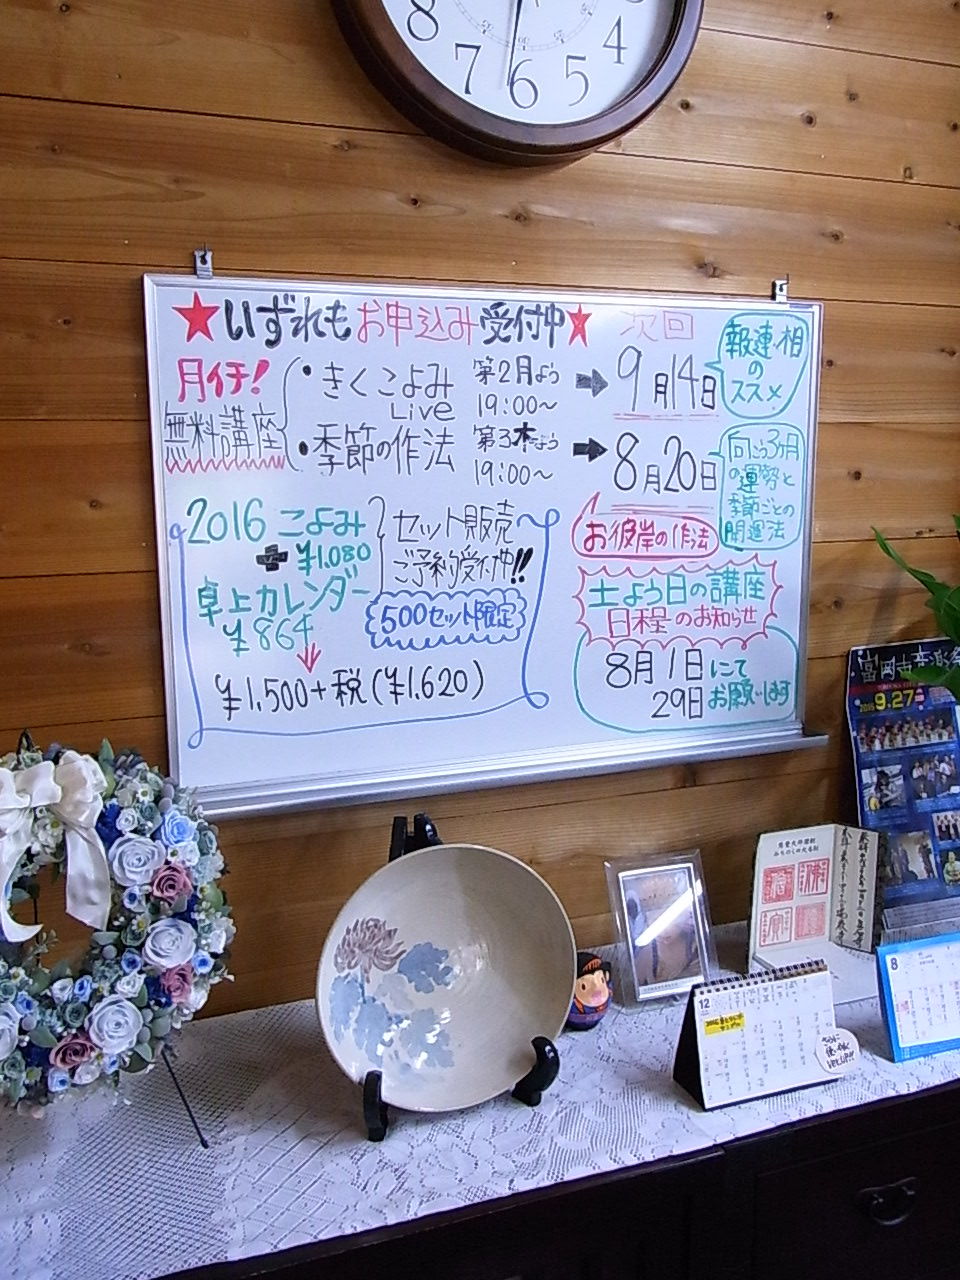 8 7 6 5 4
★いずれもお申込み受付中★
月イチ!
無料講座
・きくこよみ
Live
第2月よう
19:00～
・季節の作法
第3木よう
19:00～
次回
➡9月14日
報連相
の
ススメ
➡8月20日
お彼岸の作法
向こう3ヶ月
の運勢と
季節ごとの
開運法
2016 こよみ
+ ¥1.080
卓上カレンダー
¥864
セット販売
ご予約受付中!!
500セット限定
¥1.500+税(¥1.620)
土よう日の講座
日程のお知らせ
8月1日にて
29日お願いします
2015
9.27
12
8